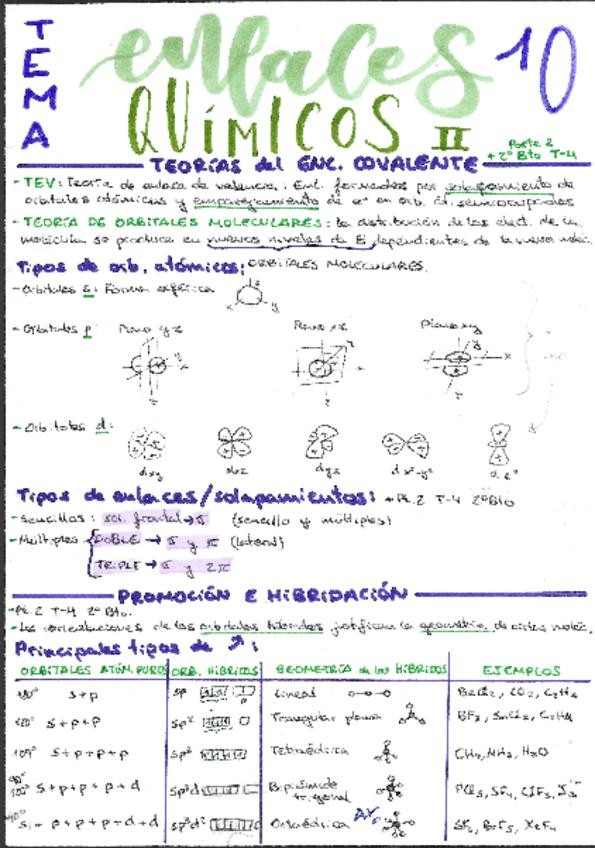 TEMA
enlaces 10
QUÍMICOS II
Parte 2
+ 2º Bto T-4
TEORÍAS del ENC. COVALENTE
- TEV: Teoría de enlace de valencia: Enl. formados por solapamiento de
orbitales atómicos y emparejamiento de e⁻ en orb. at. semiocupados
- TEORÍA DE ORBITALES MOLECULARES: la distribución de los elect. de la
molécula se produce en nuevos niveles de E dependientes de la nueva moléc.
Tipos de orb. atómicos: ORBITALES MOLECULARES.
- Orbitales s: Forma esférica
z
y
- Orbitales p: Plano yz Plano xz Plano xy
- Orbitales d:
dxy dxz dyz dx²-y² dz²
Tipos de enlaces/solapamientos: + Pt. 2 T-4 2ºBto
- Sencillos: sol. frontal → σ (sencillo y múltiples)
- Múltiples DOBLE → σ y π (lateral)
TRIPLE → σ y 2π
PROMOCIÓN E HIBRIDACIÓN
- Pt. 2 T-4 2º Bto.
- Las orientaciones de los orbitales híbridos justifican la geometría de ciertas moléc.
Principales tipos de :
ORBITALES ATÓM. PUROS ORB. HÍBRIDOS GEOMETRÍA de los HÍBRIDOS EJEMPLOS
180º s+p sp Lineal BeCl₂, CO₂, C₂H₂
120º s+p+p sp² Triangular plana BF₃, SnCl₂, C₂H₄
109º s+p+p+p Tetraédrica CH₄, NH₃, H₂O
s+p+p+p+d sp³d Bipirámide trigonal PCl₅, SF₄, ClF₃, I₃⁻
p+p+p+d+d sp³d² Octaédrica SF₆, BrF₅, XeF₄